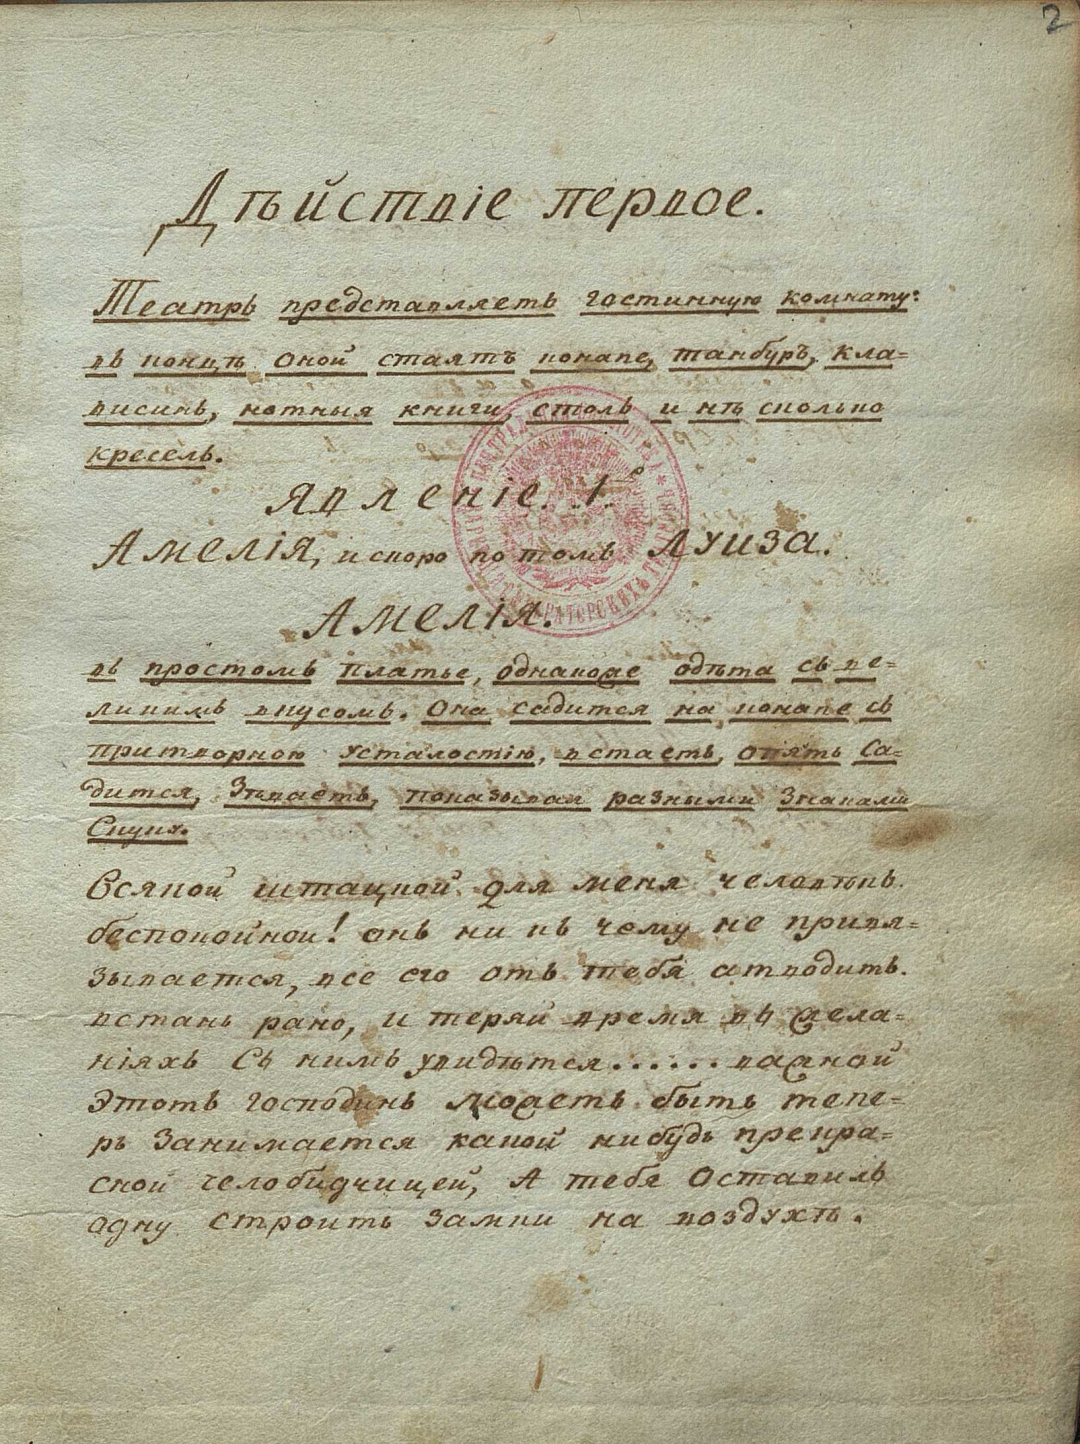 2
Дѣйствіе первое.
Театръ представляетъ гостинную комнату:
въ концѣ оной стаятъ конапе, танбуръ, кла=
висинъ, нотныя книги, столъ и нѣ сколько
креселъ.
Явленіе. 1е
Амелія, и скоро по томъ Луиза.
Амелія.
въ простомъ платье, однакоже одѣта съ ве=
ликимъ вкусомъ. Она садится на конапе съ
притворною усталостію, встаетъ, опять са=
дится, Зѣваетъ, показывая разными знаками
Скуку.
Всякой штацкой для меня человѣкъ
беспокойной! онъ ни къ чему не привя=
зывается, все его отъ тебя атводитъ.
встань рано, и теряй время въ жела=
ніяхъ Съ нимъ увидѣтся...... важной
Этотъ господинъ можетъ быть тепе=
рь Занимается какой нибудь прекра=
сной челобидчицей, А тебя Оставилъ
одну строить Замки на воздухѣ.